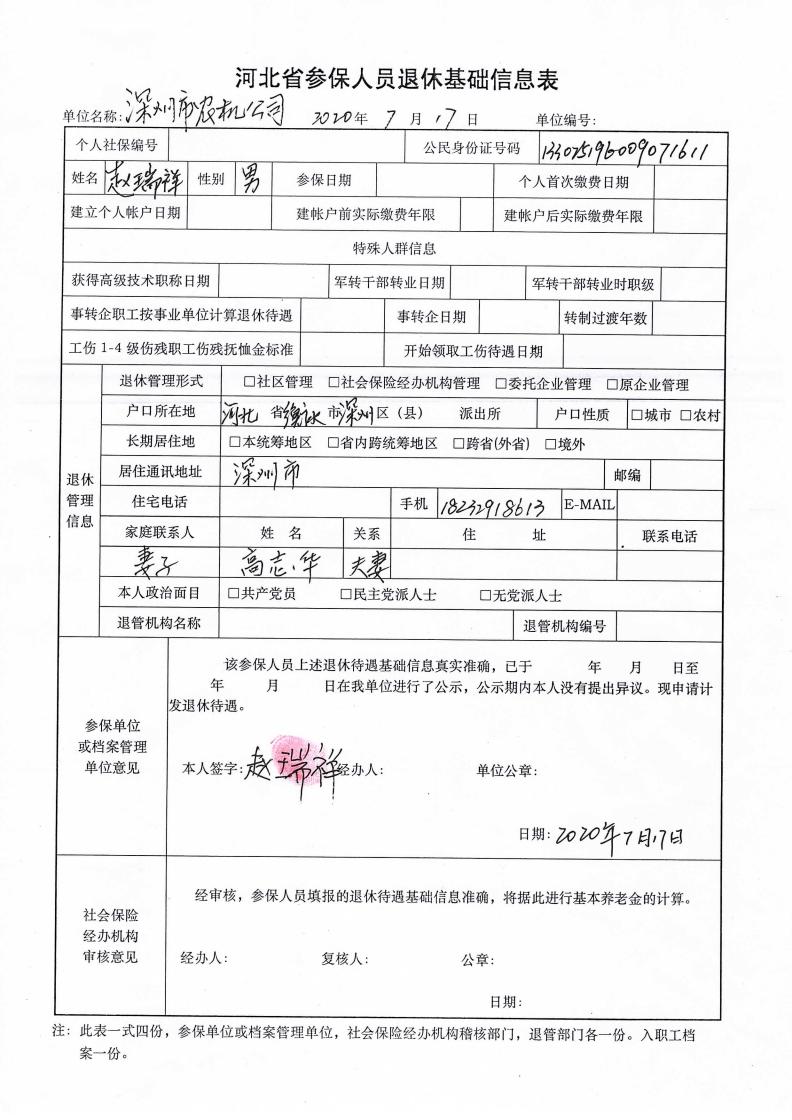 河北省参保人员退休基础信息表
单位名称：深州市农机公司 2020年 7 月 17 日 单位编号：
个人社保编号 公民身份证号码
姓名 赵瑞祥 性别 男 参保日期 个人首次缴费日期
建立个人帐户日期 建帐户前实际缴费年限 建帐户后实际缴费年限
特殊人群信息
获得高级技术职称日期 军转干部转业日期 军转干部转业时职级
事转企职工按事业单位计算退休待遇 事转企日期 转制过渡年数
工伤 1-4 级伤残职工伤残抚恤金标准 开始领取工伤待遇日期
退休管理信息
退休管理形式 □社区管理 □社会保险经办机构管理 □委托企业管理 □原企业管理
户口所在地 河北 省 衡水 市 深州 区（县） 派出所 户口性质 □城市 □农村
长期居住地 □本统筹地区 □省内跨统筹地区 □跨省(外省) □境外
居住通讯地址 深州市 邮编
住宅电话 手机 18232918613 E-MAIL
家庭联系人 姓 名 关系 住 址 联系电话
妻子 高志华 夫妻
本人政治面目 □共产党员 □民主党派人士 □无党派人士
退管机构名称 退管机构编号
参保单位
或档案管理
单位意见
该参保人员上述退休待遇基础信息真实准确，已于 年 月 日至
年 月 日在我单位进行了公示，公示期内本人没有提出异议。现申请计
发退休待遇。
本人签字：赵瑞祥 经办人： 单位公章：
日期：2020年7月17日
社会保险
经办机构
审核意见
经审核，参保人员填报的退休待遇基础信息准确，将据此进行基本养老金的计算。
经办人： 复核人： 公章：
日期：
注：此表一式四份，参保单位或档案管理单位，社会保险经办机构稽核部门，退管部门各一份。入职工档
案一份。